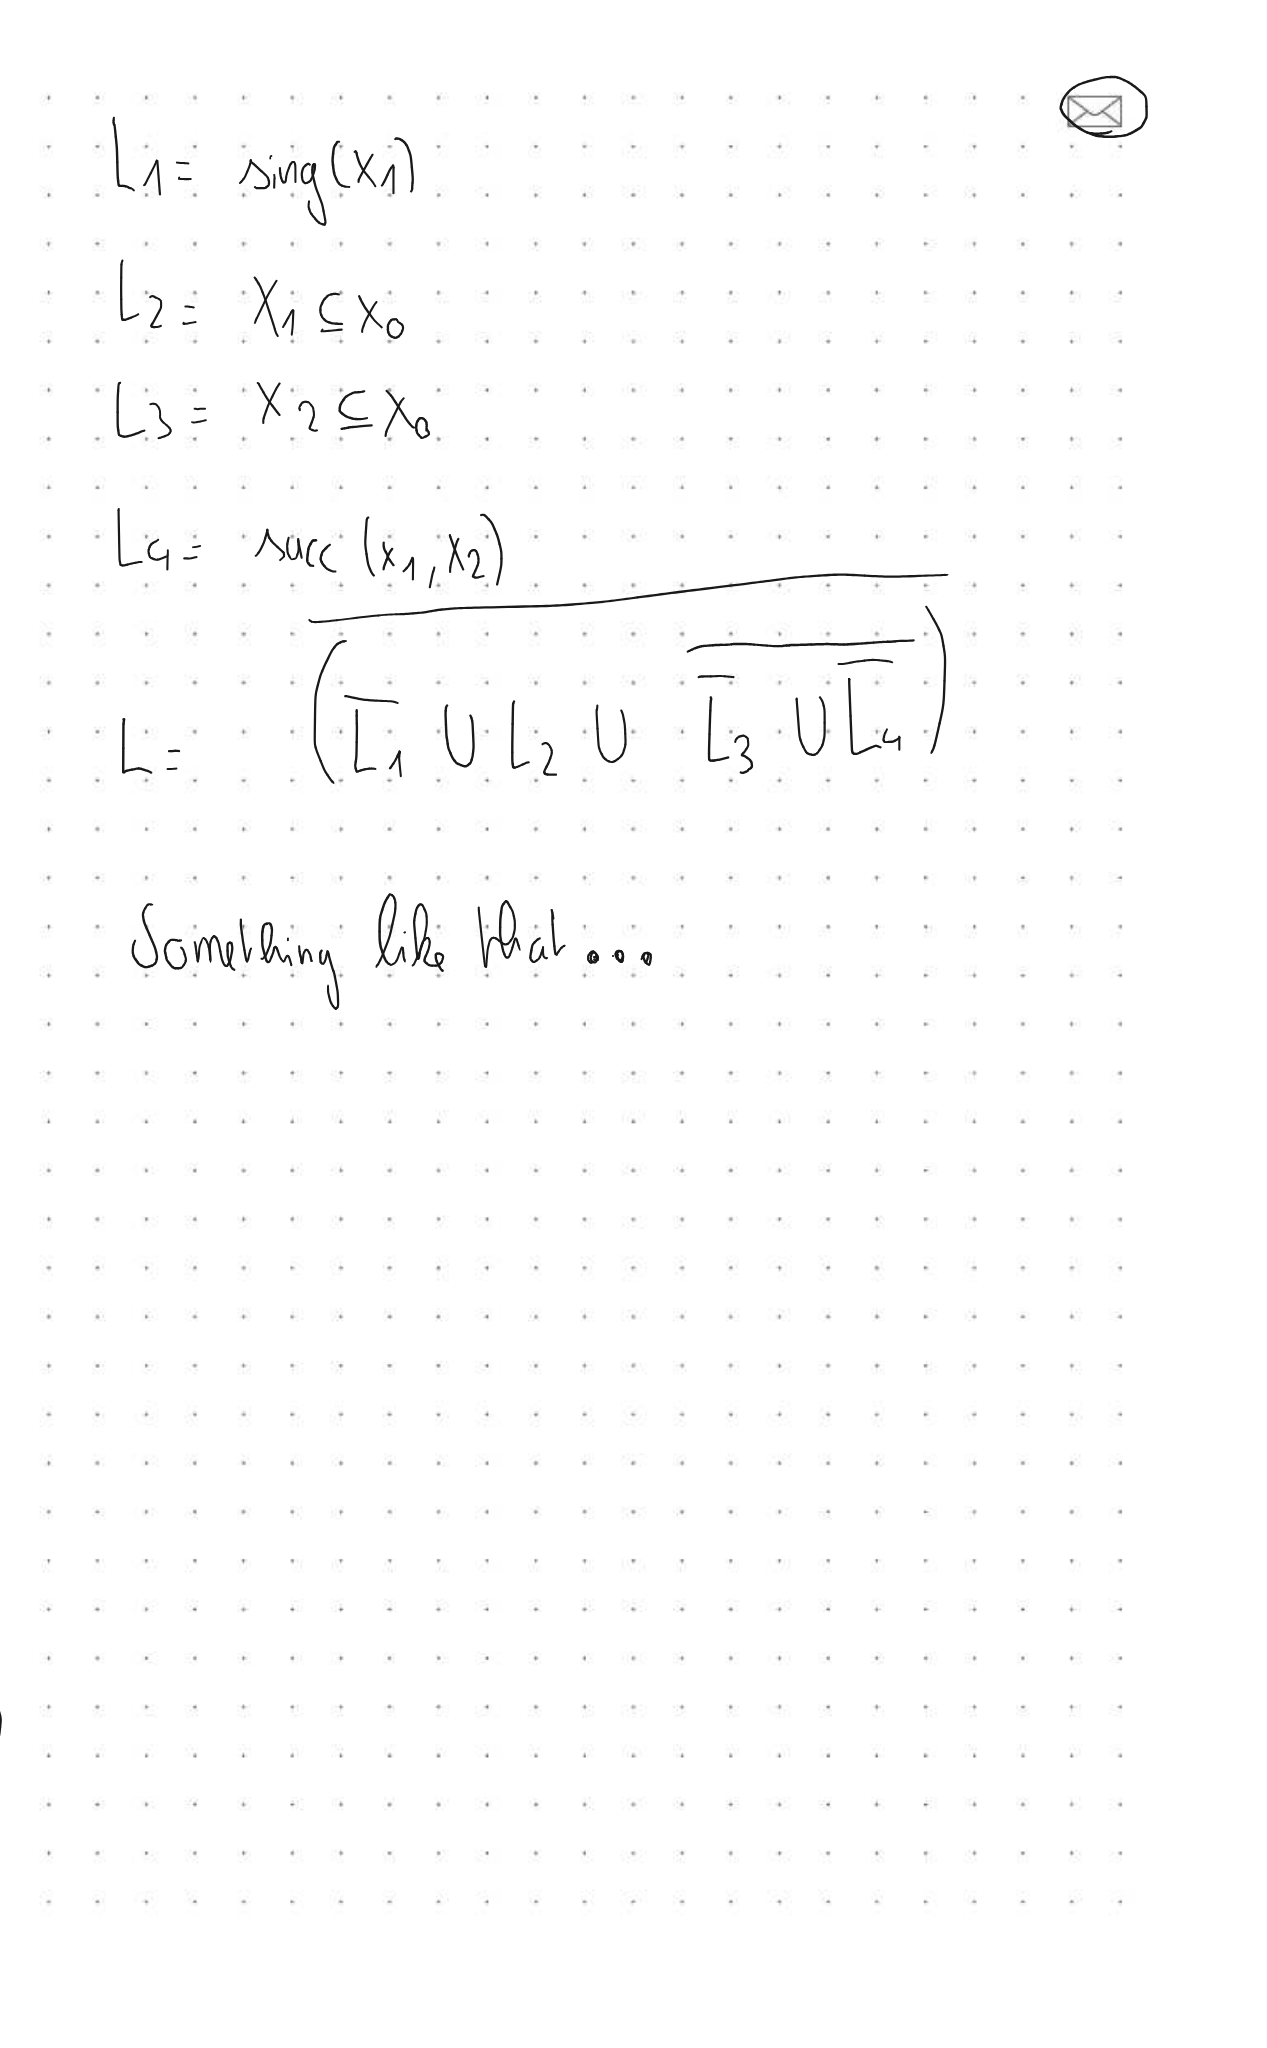 L1 = sing(X1)
L2 = X1 ⊆ X0
L3 = X2 ⊆ X0
L4 = succ(x1, x2)
L = \overline{(\overline{L1} ∪ L2 ∪ \overline{\overline{L3} ∪ \overline{L4}})}
Something like that...